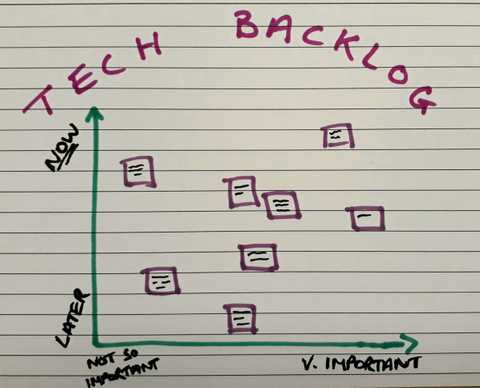 TECH BACKLOG
NOW
LATER
NOT SO
IMPORTANT
V. IMPORTANT